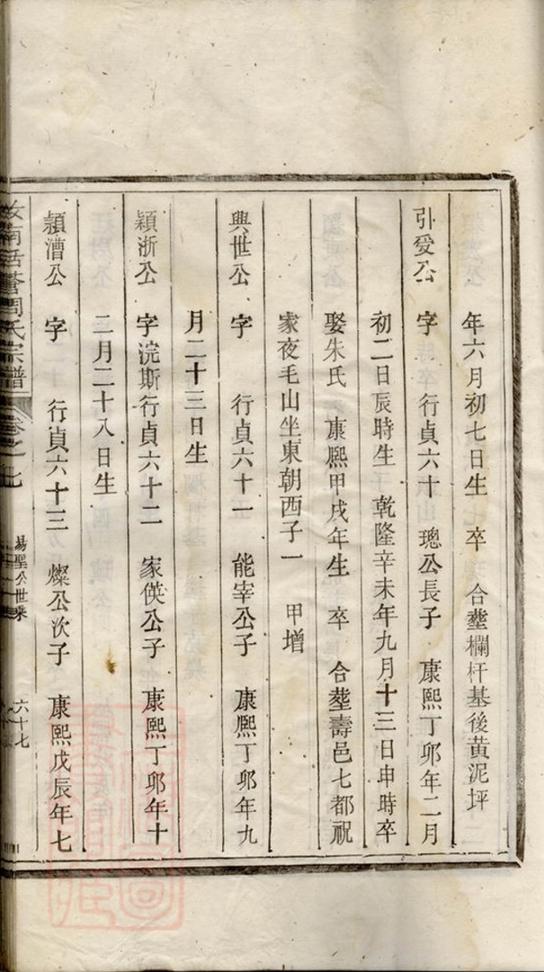 年六月初七日生 卒 合塟欄杆基後黄泥坪
引爱公 字 行貞六十 璁公長子 康熙丁卯年二月
初二日辰時生 乾隆辛未年九月十三日申時卒
娶朱氏 康熙甲戌年生 卒 合塟壽邑七都祝
家夜毛山坐東朝西子一 甲增
興世公 字 行貞六十一 能宰公子 康熙丁卯年九
月二十三日生
穎浙公 字浣斯行貞六十二 家偀公子 康熙丁卯年十
二月二十八日生
穎漕公 字 行貞六十三 燦公次子 康熙戊辰年七
汝南活簹周氏宗譜 卷之七 六十七